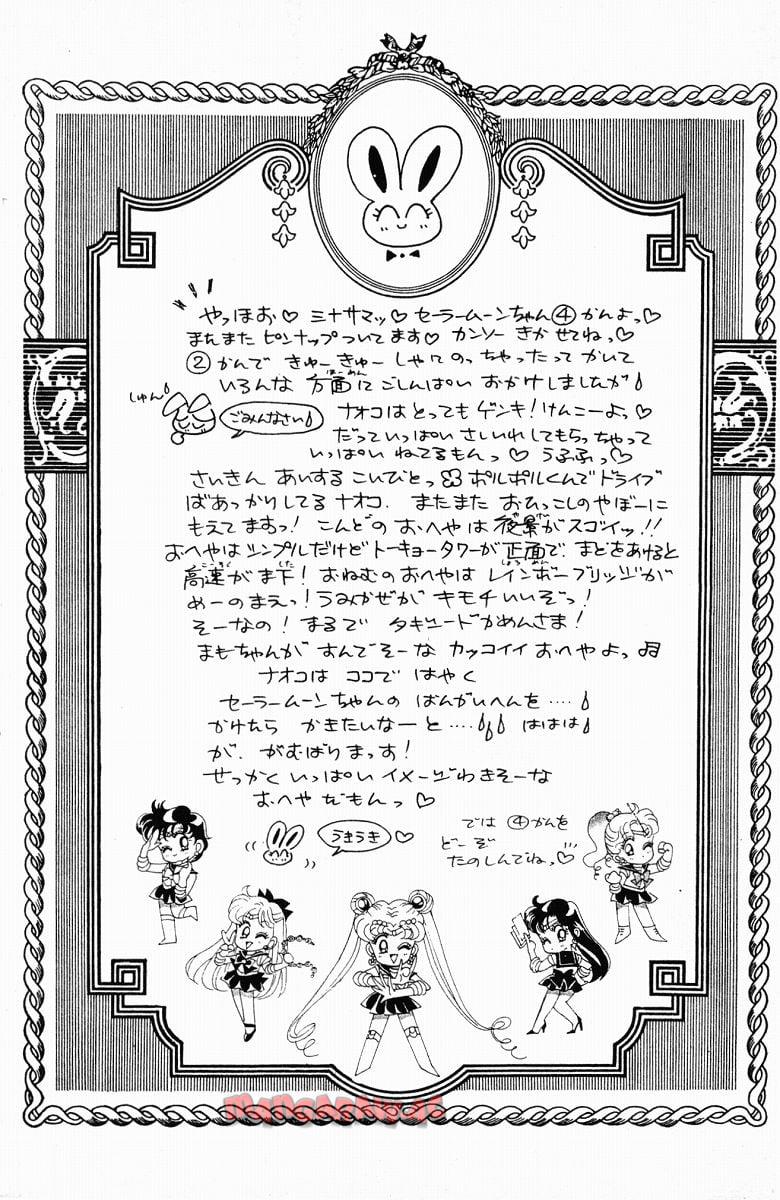 やっほお♡ ミナサマッ♡ セーラームーンちゃん④かんよっ♡
またまた ピンナップついてます♡ カンソー きかせてねっ♡
②かんで きゅーきゅーしゃにのっちゃったってかいて
いろんな 方面に ごしんぱい おかけしましたが
ほーめん
しゅん
ごみんなさい
ナオコはとってもゲンキ!けんこーよっ♡
だっていっぱい さしいれしてもらっちゃって
いっぱい ねてるもんっ♡ うふふっ♡
さいきん あいする こいびとっ ポルポルくんでドライブ
ばあっかりしてる ナオコ. またまた おひっこしのやぼーに
もえてますっ! こんどの おへやは 夜景がスゴイッ!!
やけい
おへやはシンプルだけどトーキョータワーが正面で、まどをあけると
しょうめん
高速が真下! おねむのおへやは レインボーブリッジが
こうそく
ました
めーのまえっ! うみかぜが キモチいいぞっ!
そーなの! まるで タキシードかめんさま!
まもちゃんが すんでそーな カッコイイ おへやよっ♫
ナオコは ココで はやく
セーラームーンちゃんの ばんがいへんを‥‥
かけたら かきたいなーと‥‥ ははは
が、がむばりまっす!
せっかく いっぱい イメージわきそーな
おへや だもんっ♡
うきうき ♡
では ④かんを
どーぞ
たのしんでねっ♡